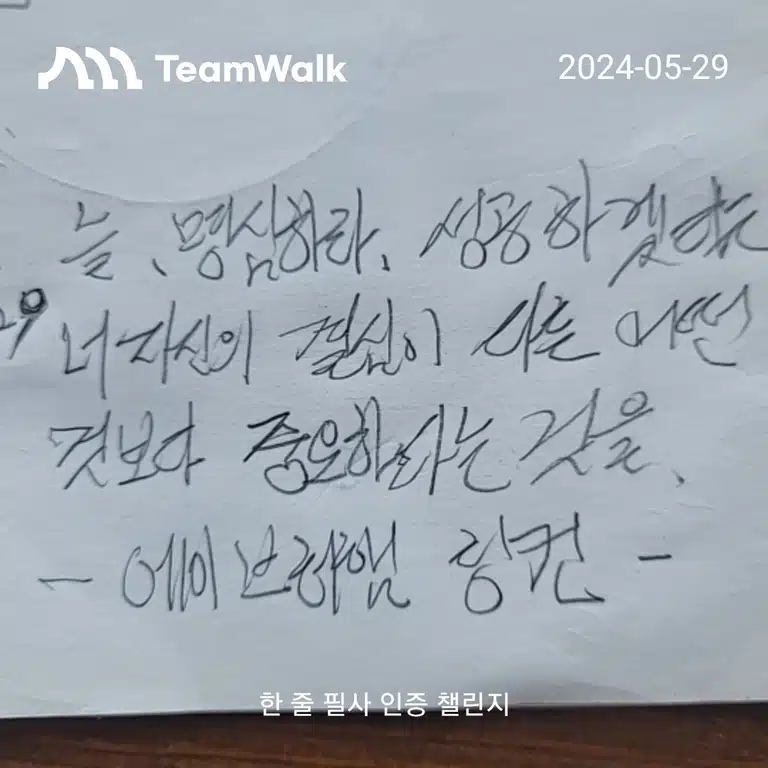 TeamWalk
2024-05-29
늘, 명심하라. 성공하겠다는
29 너 자신의 결심이 다른 어떤
것보다 중요하다는 것을.
- 에이브라햄 링컨 -
한 줄 필사 인증 챌린지